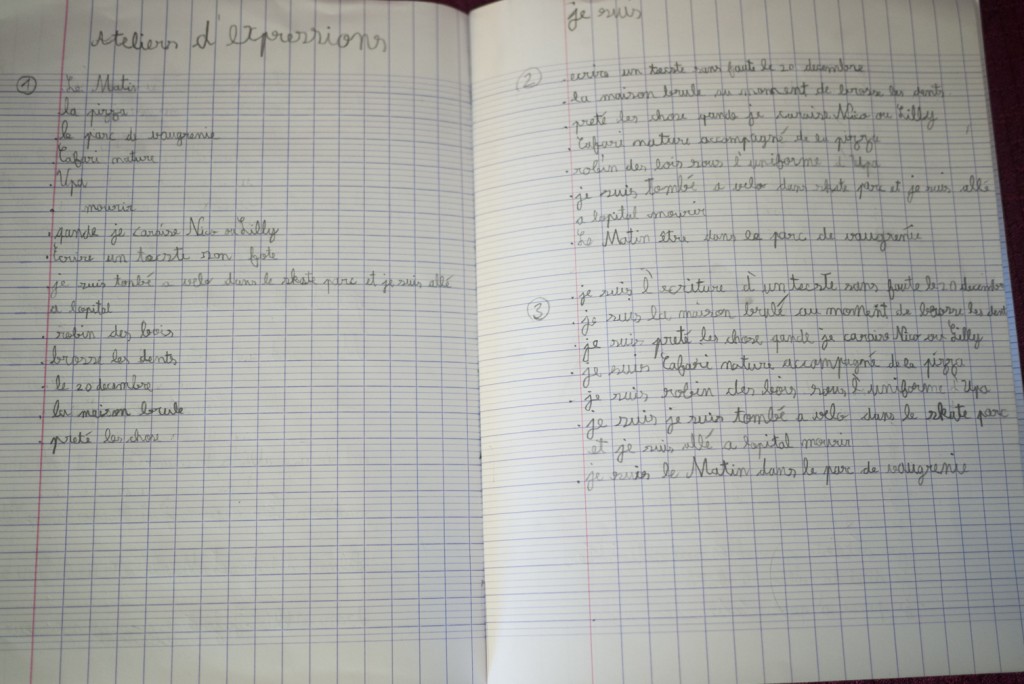 Ateliers d'expressions
① Le Matin
la pizza
le parc de vaugrenie
Cafari nature
. Upa
. mourir
. gande je caraire Nico ou Lilly
. ecrire un tecste son fote
je suis tombé a velo dans le skate parc et je suis allé
a lopital
. robin des bois
. brosse les dents
. le 20 decembre
. la maison brule
. preté les chose
je suis
② . ecrire un tecste sans faute le 20 decembre
. la maison brule au moment de brosse les dents
. preté les chose gande je caraire Nico ou Lilly
. Cafari nature accompagné de la pizza
. robin des bois sous l'uniforme d'Upa
. je suis tombé a velo dans skate parc et je suis allé
a lopital mourir
. Le Matin etre dans le parc de vaugrenie
③ . je suis l'ecriture d'un tecste sans faute le 20 decembre
. je suis la maison brulé au moment de brosse les dent
. je suis preté les chose gande je caraire Nico ou Lilly
. je suis Cafari nature accompagné de la pizza
. je suis robin des bois sous l'uniforme d'Upa
. je suis je suis tombé a velo dans le skate parc
et je suis allé a lopital mourir
. je suis le Matin dans le parc de vaugrenie